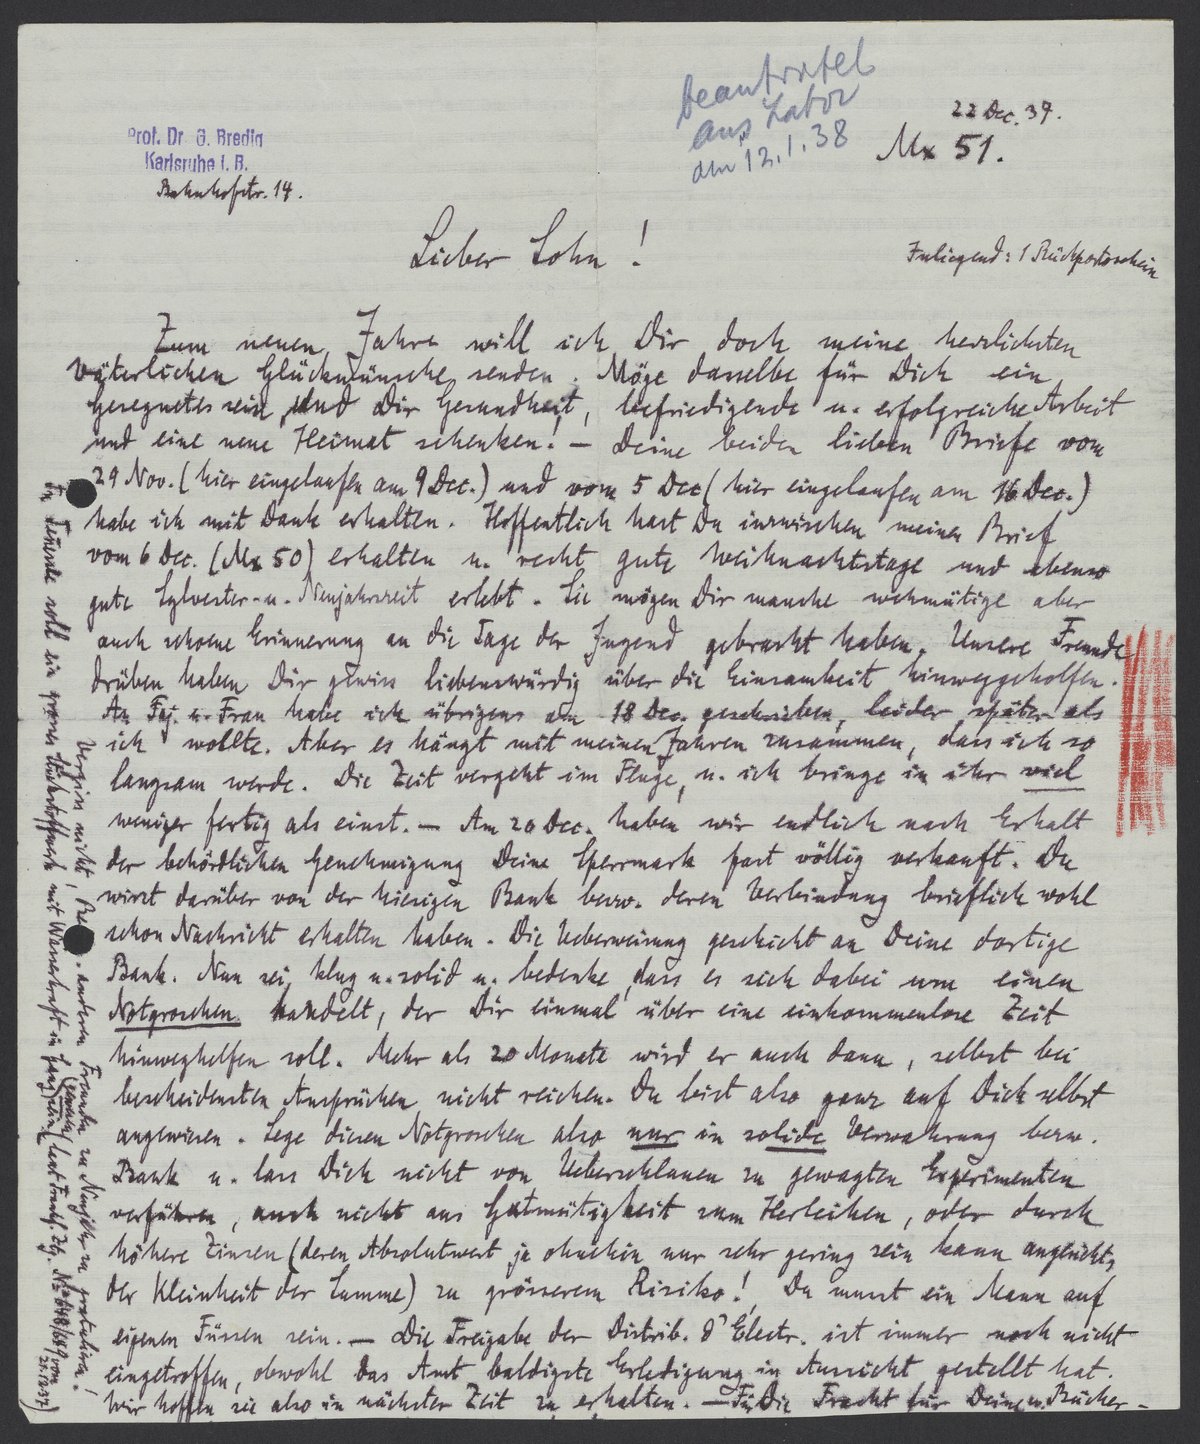 Prof. Dr. G. Bredig
Karlsruhe i. B.
Bahnhofstr. 14.
beantwortet
aus Labor
am 12.1.38
22 Dec. 37.
Mx 51.
Inliegend: 1 Rückportoschein
Lieber Sohn!
Zum neuen Jahre will ich Dir doch meine herzlichsten
väterlichen Glückwünsche senden. Möge dasselbe für Dich ein
gesegnetes sein und Dir Gesundheit, befriedigende u. erfolgreiche Arbeit
und eine neue Heimat schenken! — Deine beiden lieben Briefe vom
29 Nov. (hier eingelaufen am 9 Dec.) und vom 5 Dec (hier eingelaufen am 16 Dec.)
habe ich mit Dank erhalten. Hoffentlich hast Du inzwischen meinen Brief
vom 6 Dec. (Mx 50) erhalten u. recht gute Weihnachtstage und ebenso
gute Sylvester- u. Neujahrszeit erlebt. Sie mögen Dir manche wehmütige aber
auch schoene Erinnerung an die Tage der Jugend gebracht haben. Unsere Freunde
drüben haben Dir gewiss liebenswürdig über die Einsamkeit hinweggeholfen.
An Faj. u. Frau habe ich übrigens am 18 Dec. geschrieben, leider später als
ich wollte. Aber es hängt mit meinen Jahren zusammen, dass ich so
langsam werde. Die Zeit vergeht im Fluge, u. ich bringe in ihr viel
weniger fertig als einst. — Am 20 Dec. haben wir endlich nach Erhalt
der behördlichen Genehmigung Deine Sperrmark fast völlig verkauft. Du
wirst darüber von der hiesigen Bank bezw. deren Verbindung brieflich wohl
schon Nachricht erhalten haben. Die Ueberweisung geschieht an Deine dortige
Bank. Nun sei klug u. solid u. bedenke, dass es sich dabei um einen
Notgroschen handelt, der Dir einmal über eine einkommenlose Zeit
hinweghelfen soll. Mehr als 20 Monate wird er auch dann, selbst bei
bescheidensten Ansprüchen nicht reichen. Du bist also ganz auf Dich selbst
angewiesen. Lege diesen Notgroschen also nur in solide Verwahrung bezw.
Bank u. lass Dich nicht von Ueberschlauen zu gewagten Experimenten
verführen, auch nicht aus Gutmütigkeit zum Herleihen, oder durch
höhere Zinsen (deren Absolutwert ja ohnehin nur sehr gering sein kann angesichts
der Kleinheit der Summe) zu grösserem Risiko! Du musst ein Mann auf
eigenen Füssen sein. — Die Freigabe der Distrib. d'Electr. ist immer noch nicht
eingetroffen, obwohl das Amt baldigste Erledigung in Aussicht gestellt hat.
Wir hoffen sie also in nächster Zeit zu erhalten. — Für die Fracht für Deine Bücher-
Vergiss nicht, anderen Freunden zu Neujahr zu gratulieren!
soll ein grosses Stickstoffwerk mit Wasserkraft in (laut Frankf. Ztg. No 648/649 vom
21.12.37)